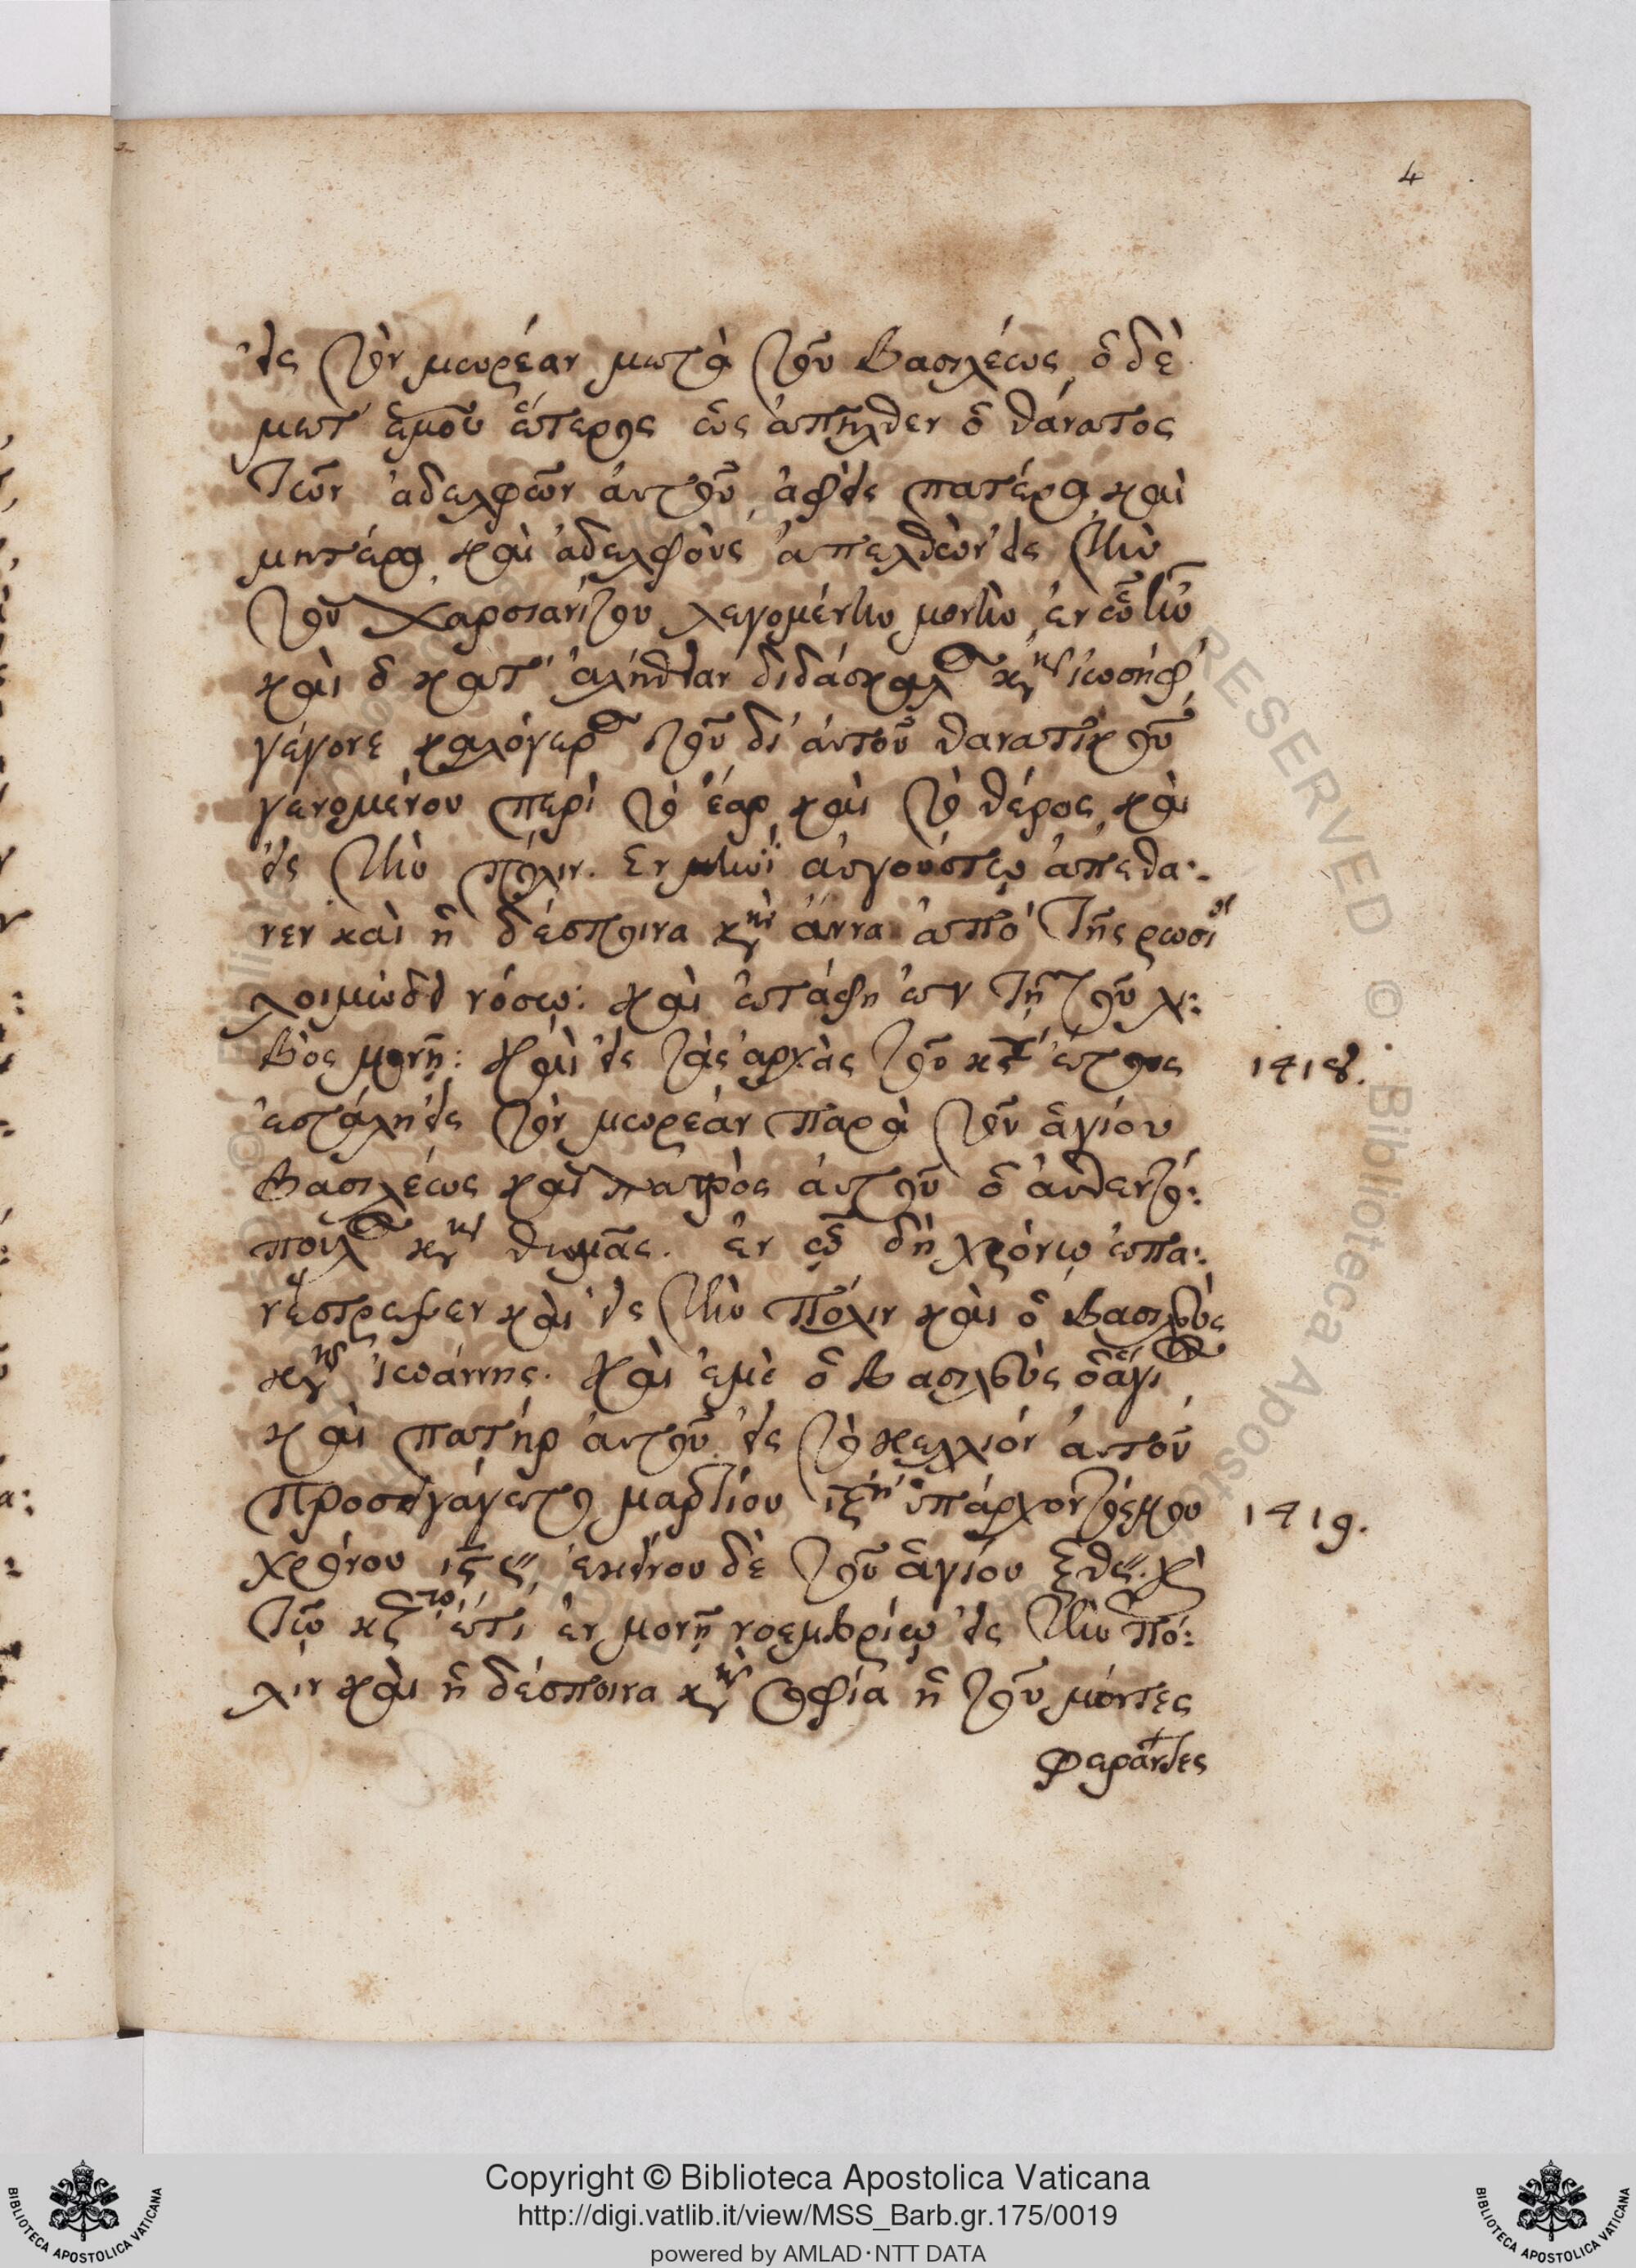 4
εἰς τὸν μωρέαν μετὰ τοῦ βασιλέως, ὁ δὲ
μετ' ἐμοῦ ἕτερος ἕως ἀπῆλθεν ὁ θάνατος
τῶν ἀδελφῶν αὐτοῦ, ἀφεὶς πατέρα καὶ
μητέρα καὶ ἀδελφοὺς ἀπελθὼν εἰς τὴν
τοῦ Χαρσιανίτου λεγομένην μονὴν, ἐν ᾧ ἦν
καὶ ὁ κατ' ἀλήθειαν διδάσκαλος κὺρ ἰωσὴφ,
γέγονε καλόγερος τοῦ δι' αὐτοῦ θανατικοῦ
γενομένου περὶ τὸ ἔαρ καὶ τὸ θέρος, καὶ
εἰς τὴν πόλιν. Ἐν μηνὶ αὐγούστῳ ἀπέθα:
νεν καὶ ἡ δέσποινα κυρὰ ἄννα ἀπὸ τῆς ρωσί
λοιμώδει νόσῳ: καὶ ἐτάφη ἐν τῇ τοῦ λι:
βὸς μονῇ: Καὶ εἰς τὰς ἀρχὰς τοῦ κϛ ἔτους 1418.
ἐστάλη εἰς τὸν μωρέαν παρὰ τοῦ ἁγίου
βασιλέως καὶ πατρὸς αὐτοῦ ὁ αὐθεντό:
πουλος κὺρ θωμᾶς. ἐν ᾧ δὴ χρόνῳ ἐπα:
νέστρεψεν καὶ εἰς τὴν πόλιν καὶ ὁ βασιλεὺς
κὺρ ἰωάννης. Καὶ ἐμὲ ὁ βασιλεὺς ὁ ἅγιος
καὶ πατὴρ αὐτοῦ εἰς τὸ κελλίον αὐτοῦ
προσηγάγετο μαρτίου ὑπάρχοντός μου 1419.
χρόνου ἐκείνου δὲ τοῦ ἁγίου ξθ καὶ
τῷ κζ ἔτει ἐν μονῇ νοεμβρίῳ εἰς τὴν πό:
λιν καὶ ἡ δέσποινα κυρὰ σοφία ἡ τοῦ μόντες
φεράντες
Copyright © Biblioteca Apostolica Vaticana
http://digi.vatlib.it/view/MSS_Barb.gr.175/0019
powered by AMLAD·NTT DATA
BIBLIOTECA APOSTOLICA VATICANA
BIBLIOTECA APOSTOLICA VATICANA